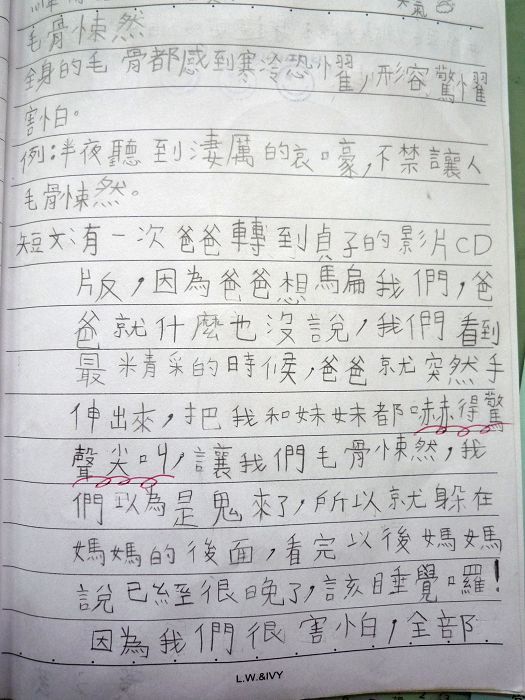 天氣
毛骨悚然
全身的毛骨都感到寒冷恐懼，形容驚懼
害怕。
例:半夜聽到淒厲的哀嚎，不禁讓人
毛骨悚然。
短文:有一次爸爸轉到貞子的影片CD
版，因為爸爸想騙我們，爸
爸就什麼也沒說，我們看到
最精采的時候，爸爸就突然手
伸出來，把我和妹妹都嚇得驚
聲尖叫，讓我們毛骨悚然，我
們以為是鬼來了，所以就躲在
媽媽的後面，看完以後媽媽
說已經很晚了，該睡覺囉!
因為我們很害怕，全部
L.W.&IVY